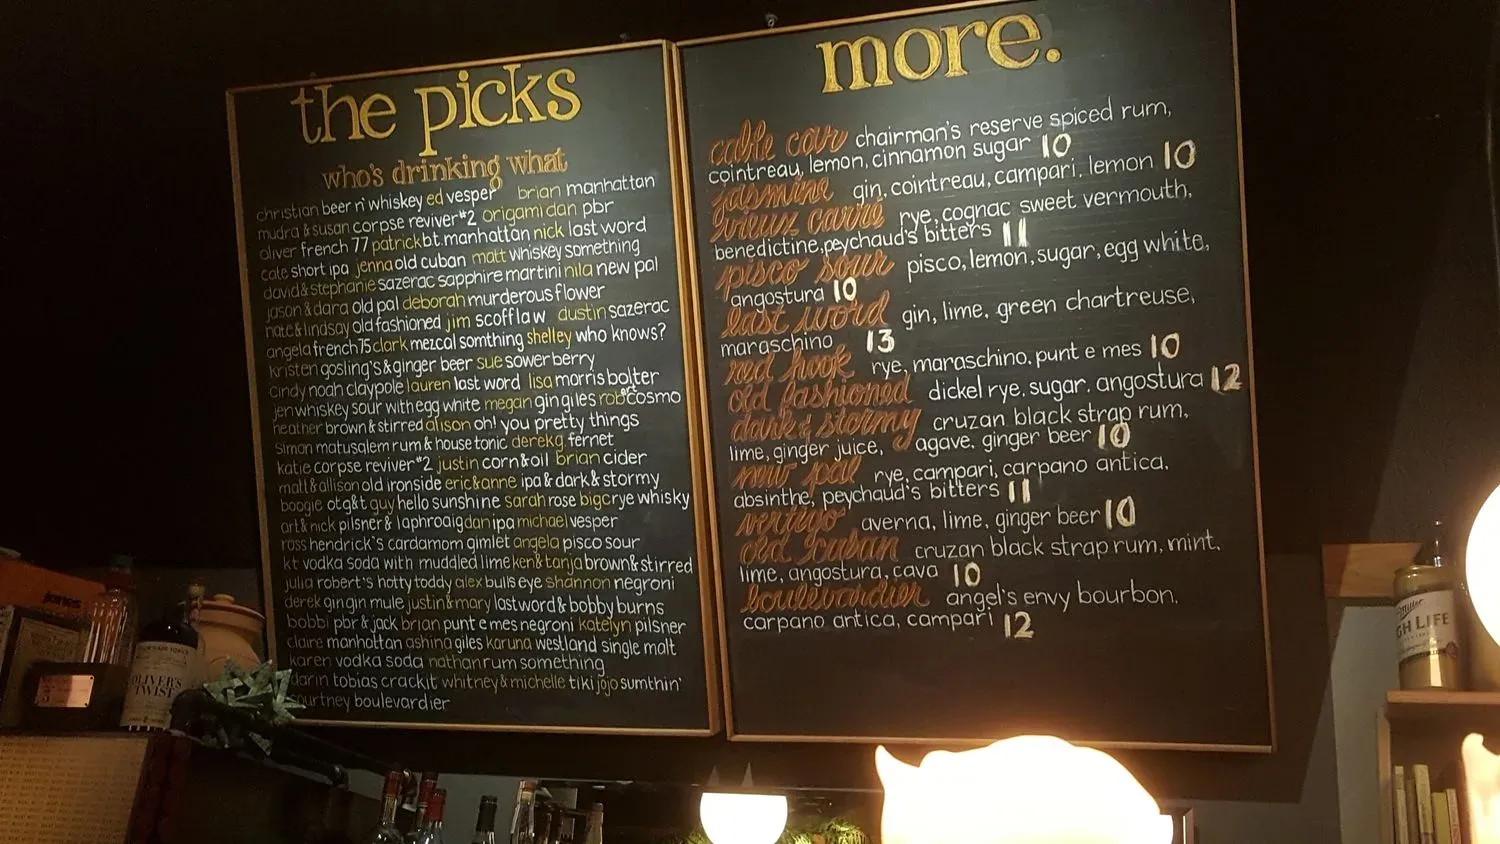 the picks
who's drinking what
christian beer n' whiskey ed vesper brian manhattan
mudra & susan corpse reviver #2 origami dan pbr
oliver french 77 patrick bt. manhattan nick last word
cate short ipa jenna old cuban matt whiskey something
david & stephanie sazerac sapphire martini nila new pal
jason & dara old pal deborah murderous flower
nate & lindsay old fashioned jim scofflaw dustin sazerac
angela french 75 clark mezcal somthing shelley who knows?
kristen gosling's & ginger beer sue sower berry
cindy noah claypole lauren last word lisa morris bolter
jen whiskey sour with egg white megan gin giles rob cosmo
heather brown & stirred alison oh! you pretty things
simon matusalem rum & house tonic derekg fernet
katie corpse reviver #2 justin corn & oil brian cider
matt & allison old ironside eric & anne ipa & dark & stormy
boogie otg&t guy hello sunshine sarah rose bigc rye whisky
art & nick pilsner & laphroaig dan ipa michael vesper
ross hendrick's cardamom gimlet angela pisco sour
kt vodka soda with muddled lime ken & tanja brown & stirred
julia robert's hotty toddy alex bulls eye shannon negroni
derek gin gin mule justin & mary last word & bobby burns
bobbi pbr & jack brian punt e mes negroni katelyn pilsner
claire manhattan ashina giles karuna westland single malt
karen vodka soda nathan rum something
darin tobias crackit whitney & michelle tiki jojo sumthin'
courtney boulevardier
more.
cable car chairman's reserve spiced rum,
cointreau, lemon, cinnamon sugar 10
jasmine gin, cointreau, campari, lemon 10
vieux carré rye, cognac sweet vermouth,
benedictine, peychaud's bitters 11
pisco sour pisco, lemon, sugar, egg white,
angostura 10
last word gin, lime, green chartreuse,
maraschino 13
red hook rye, maraschino, punt e mes 10
old fashioned dickel rye, sugar, angostura 12
dark & stormy cruzan black strap rum,
lime, ginger juice, agave, ginger beer 10
new pal rye, campari, carpano antica,
absinthe, peychaud's bitters 11
vertigo averna, lime, ginger beer 10
old cuban cruzan black strap rum, mint,
lime, angostura, cava 10
boulevardier angel's envy bourbon,
carpano antica, campari 12
jones
OLIVER'S
TWIST
Miller
GH LIFE